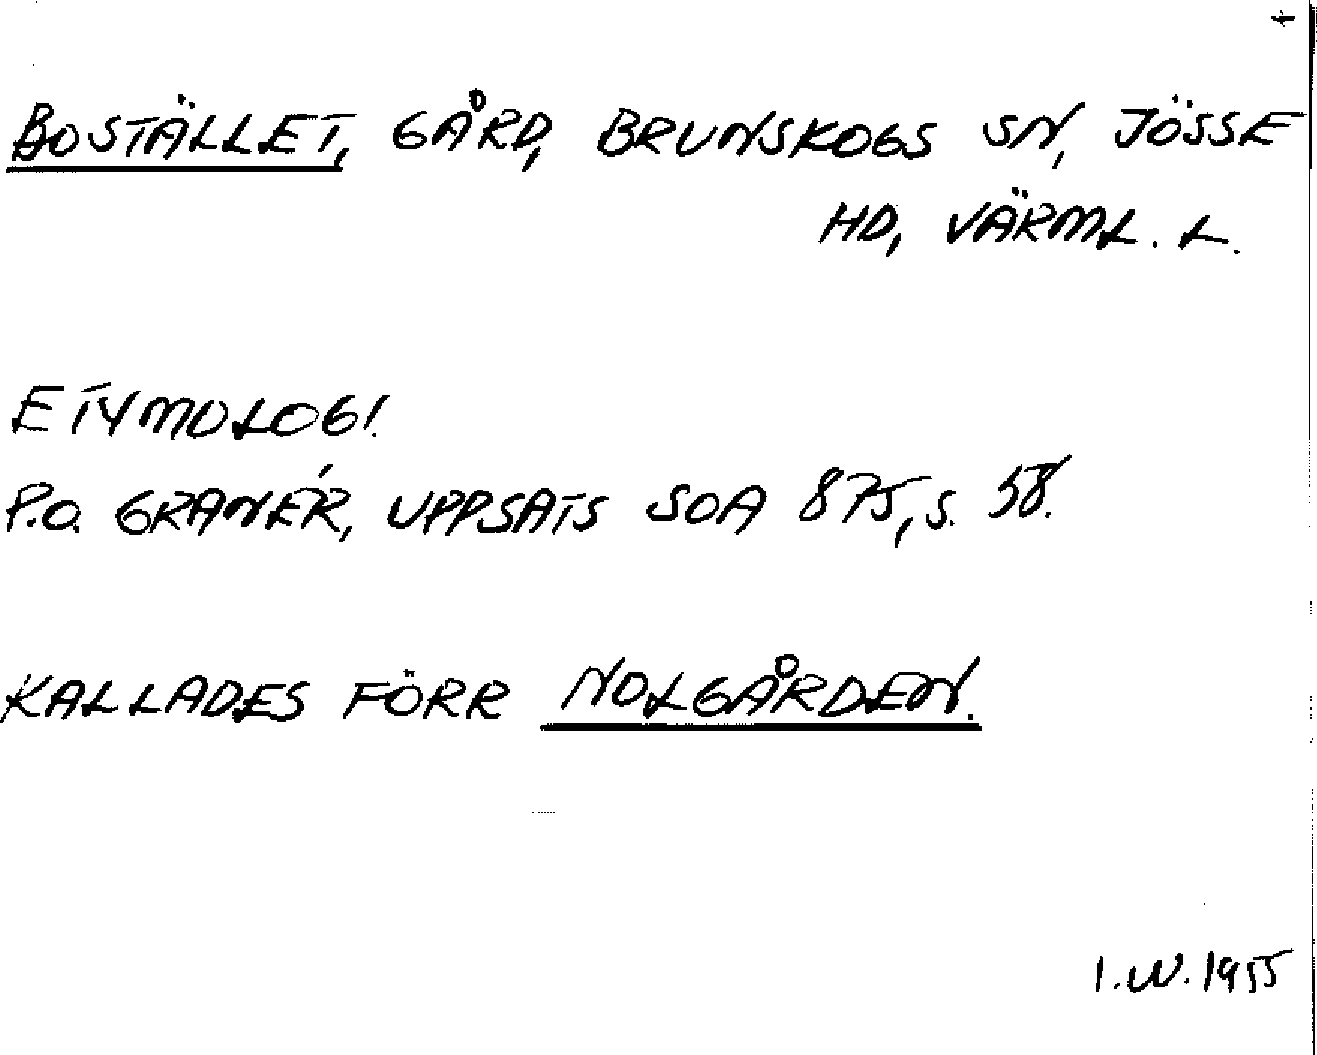 BOSTÄLLET, GÅRD, BRUNSKOGS SN, JÖSSE
HD, VÄRML. L.
ETYMOLOGI.
P.O. GRANÉR, UPPSATS SOA 875, S. 58.
KALLADES FÖRR NOLGÅRDEN.
I.W. 1955